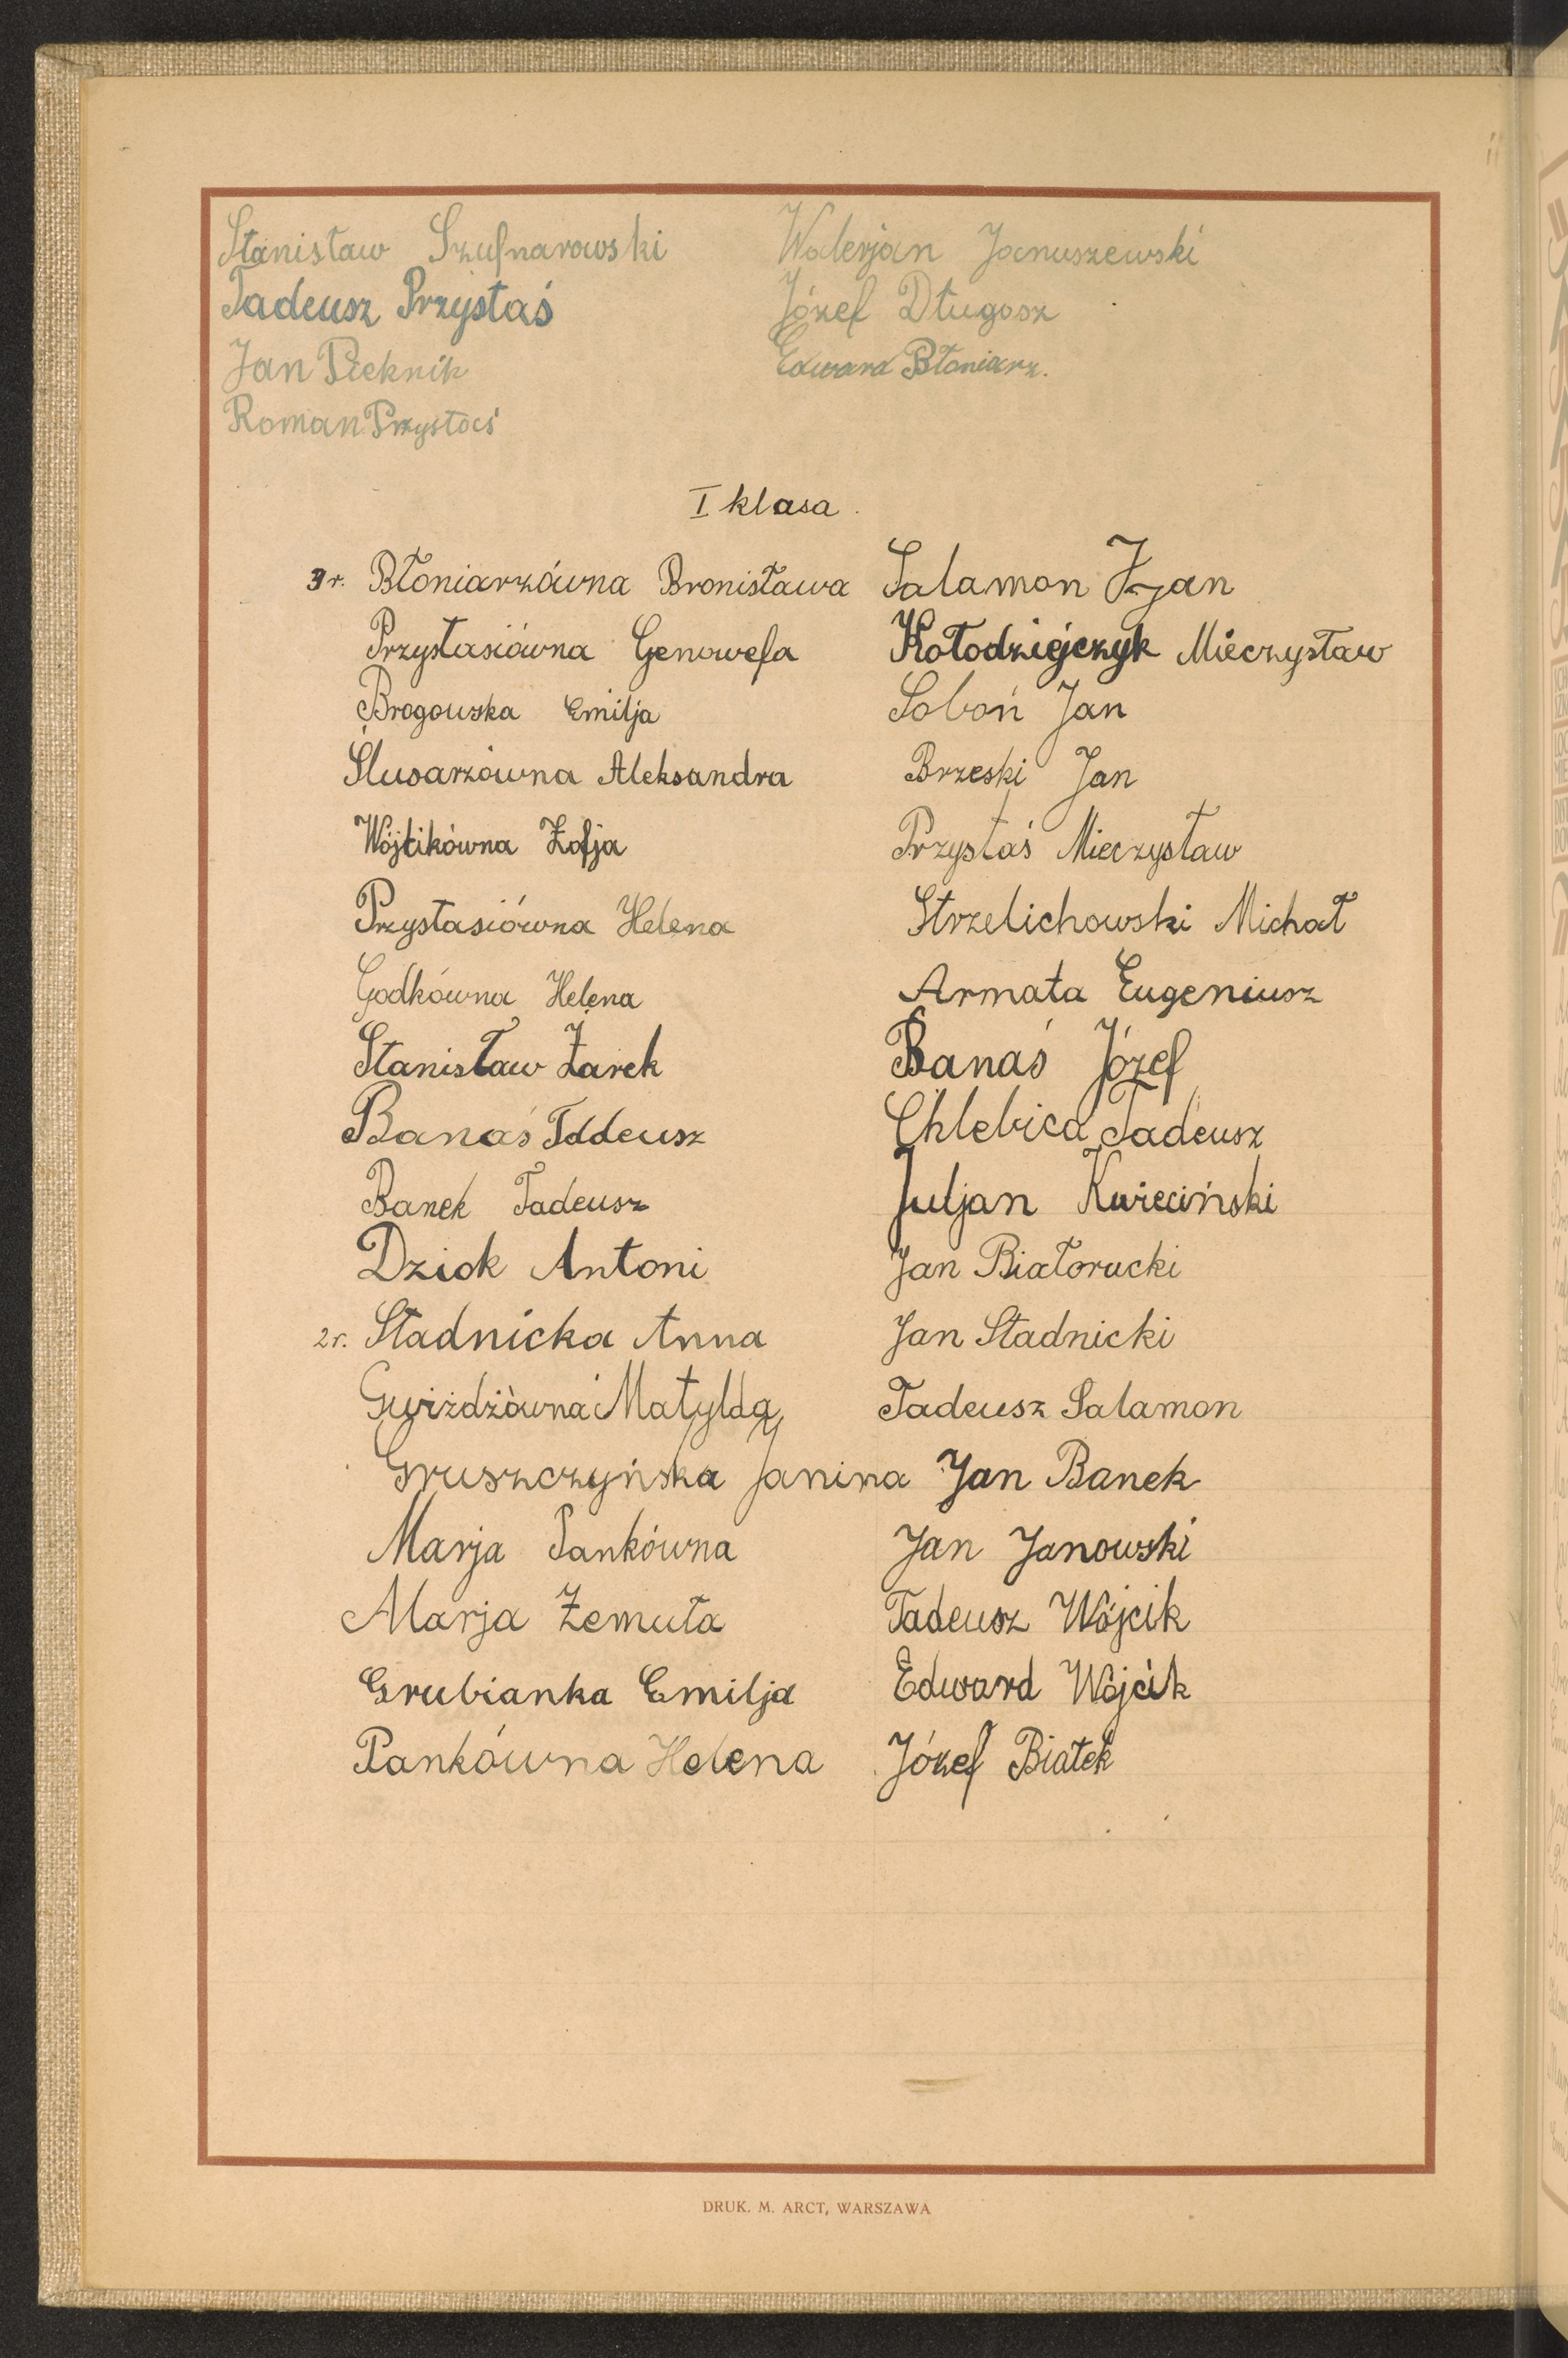 Stanisław Szufnarowski
Tadeusz Przystaś
Jan Pieknik
Roman Przystaś
Walerjan Januszewski
Józef Długosz
Edward Błoniarz.
I klasa.
3 r. Błoniarzówna Bronisława
Przystasiówna Genowefa
Brogowska Emilja
Ślusarzówna Aleksandra
Wójtikówna Zofja
Przystasiówna Helena
Godkówna Helena
Stanisław Żarek
Banaś Taddeusz
Banek Tadeusz
Dziok Antoni
2 r. Stadnicka Anna
Gwiżdżówna Matylda
Gruszczyńska Janina
Marja Pankówna
Marja Zemuła
Grubianka Emilja
Pankówna Helena
Salamon Jan
Kołodziejczyk Mieczysław
Soboń Jan
Brzeski Jan
Przystaś Mieczysław
Strzelichowski Michał
Armata Eugeniusz
Banaś Józef
Chlebica Tadeusz
Juljan Kwieciński
Jan Białorucki
Jan Stadnicki
Tadeusz Salamon
Jan Banek
Jan Janowski
Tadeusz Wójcik
Edward Wójcik
Józef Białek
DRUK. M. ARCT, WARSZAWA